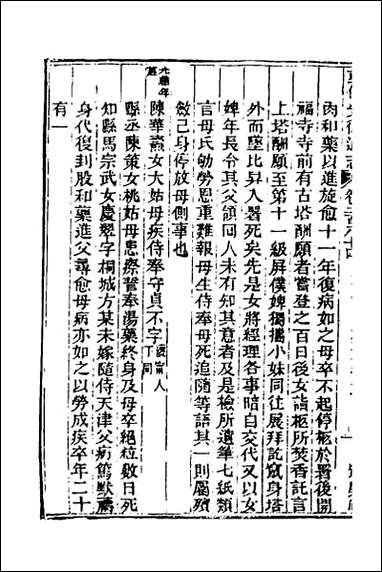 肉和藥以進旋愈十一年復病如之母卒不起停柩於署後開
福寺寺前有古塔酬願者嘗登之百日後女詣柩所焚香託言
上塔酬願至第十一級屏僕婢獨攜小妹同往展拜託竄身塔
外而墜比舁入署死矣先是女將經理各事暗自交代又以女
婢年長令其父領回人未有知其意者及是檢所遺筆七紙類
言母氏劬勞恩重難報母生侍奉母死追隨等語其一則屬殯
斂己身停放母側事也
光緒年
陳華燾女大姑母疾侍奉守貞不字
丁同
縣丞陳策女桃姑母患瘵誓奉湯藥終身及母卒絕粒數日死
知縣馬宗武女慶翠字桐城方某未嫁隨侍天津父病篤默禱
身代復刲股和藥進父尋愈母病亦如之以勞成疾卒年二十
有一